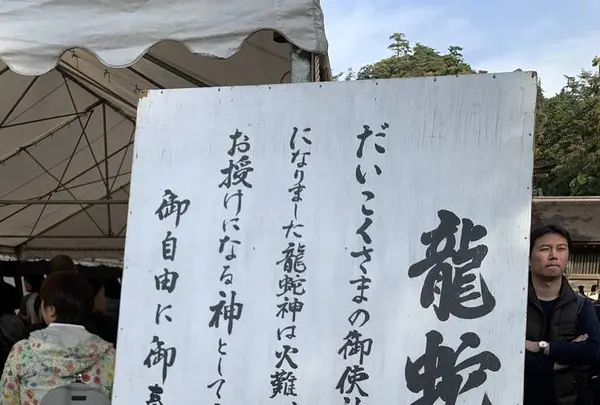 龍蛇
だいこくさまの御使
になりました龍蛇神は火難
お授けになる神として
御自由に御